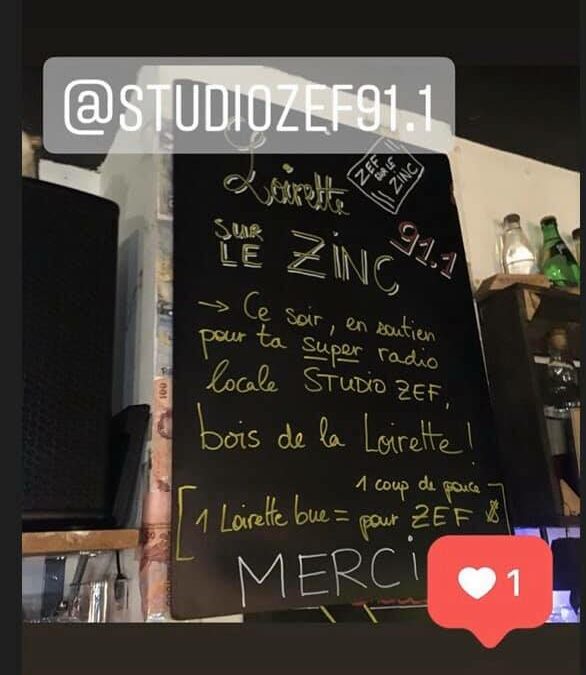 @STUDIOZEF91.1
Loirette
ZEF
SUR LE
ZINC
SUR
LE ZINC
91.1
→ Ce soir, en soutien
pour ta super radio
locale STUDIO ZEF,
bois de la Loirette !
1 coup de pouce
[1 Loirette bue = pour ZEF
MERCI
1
100